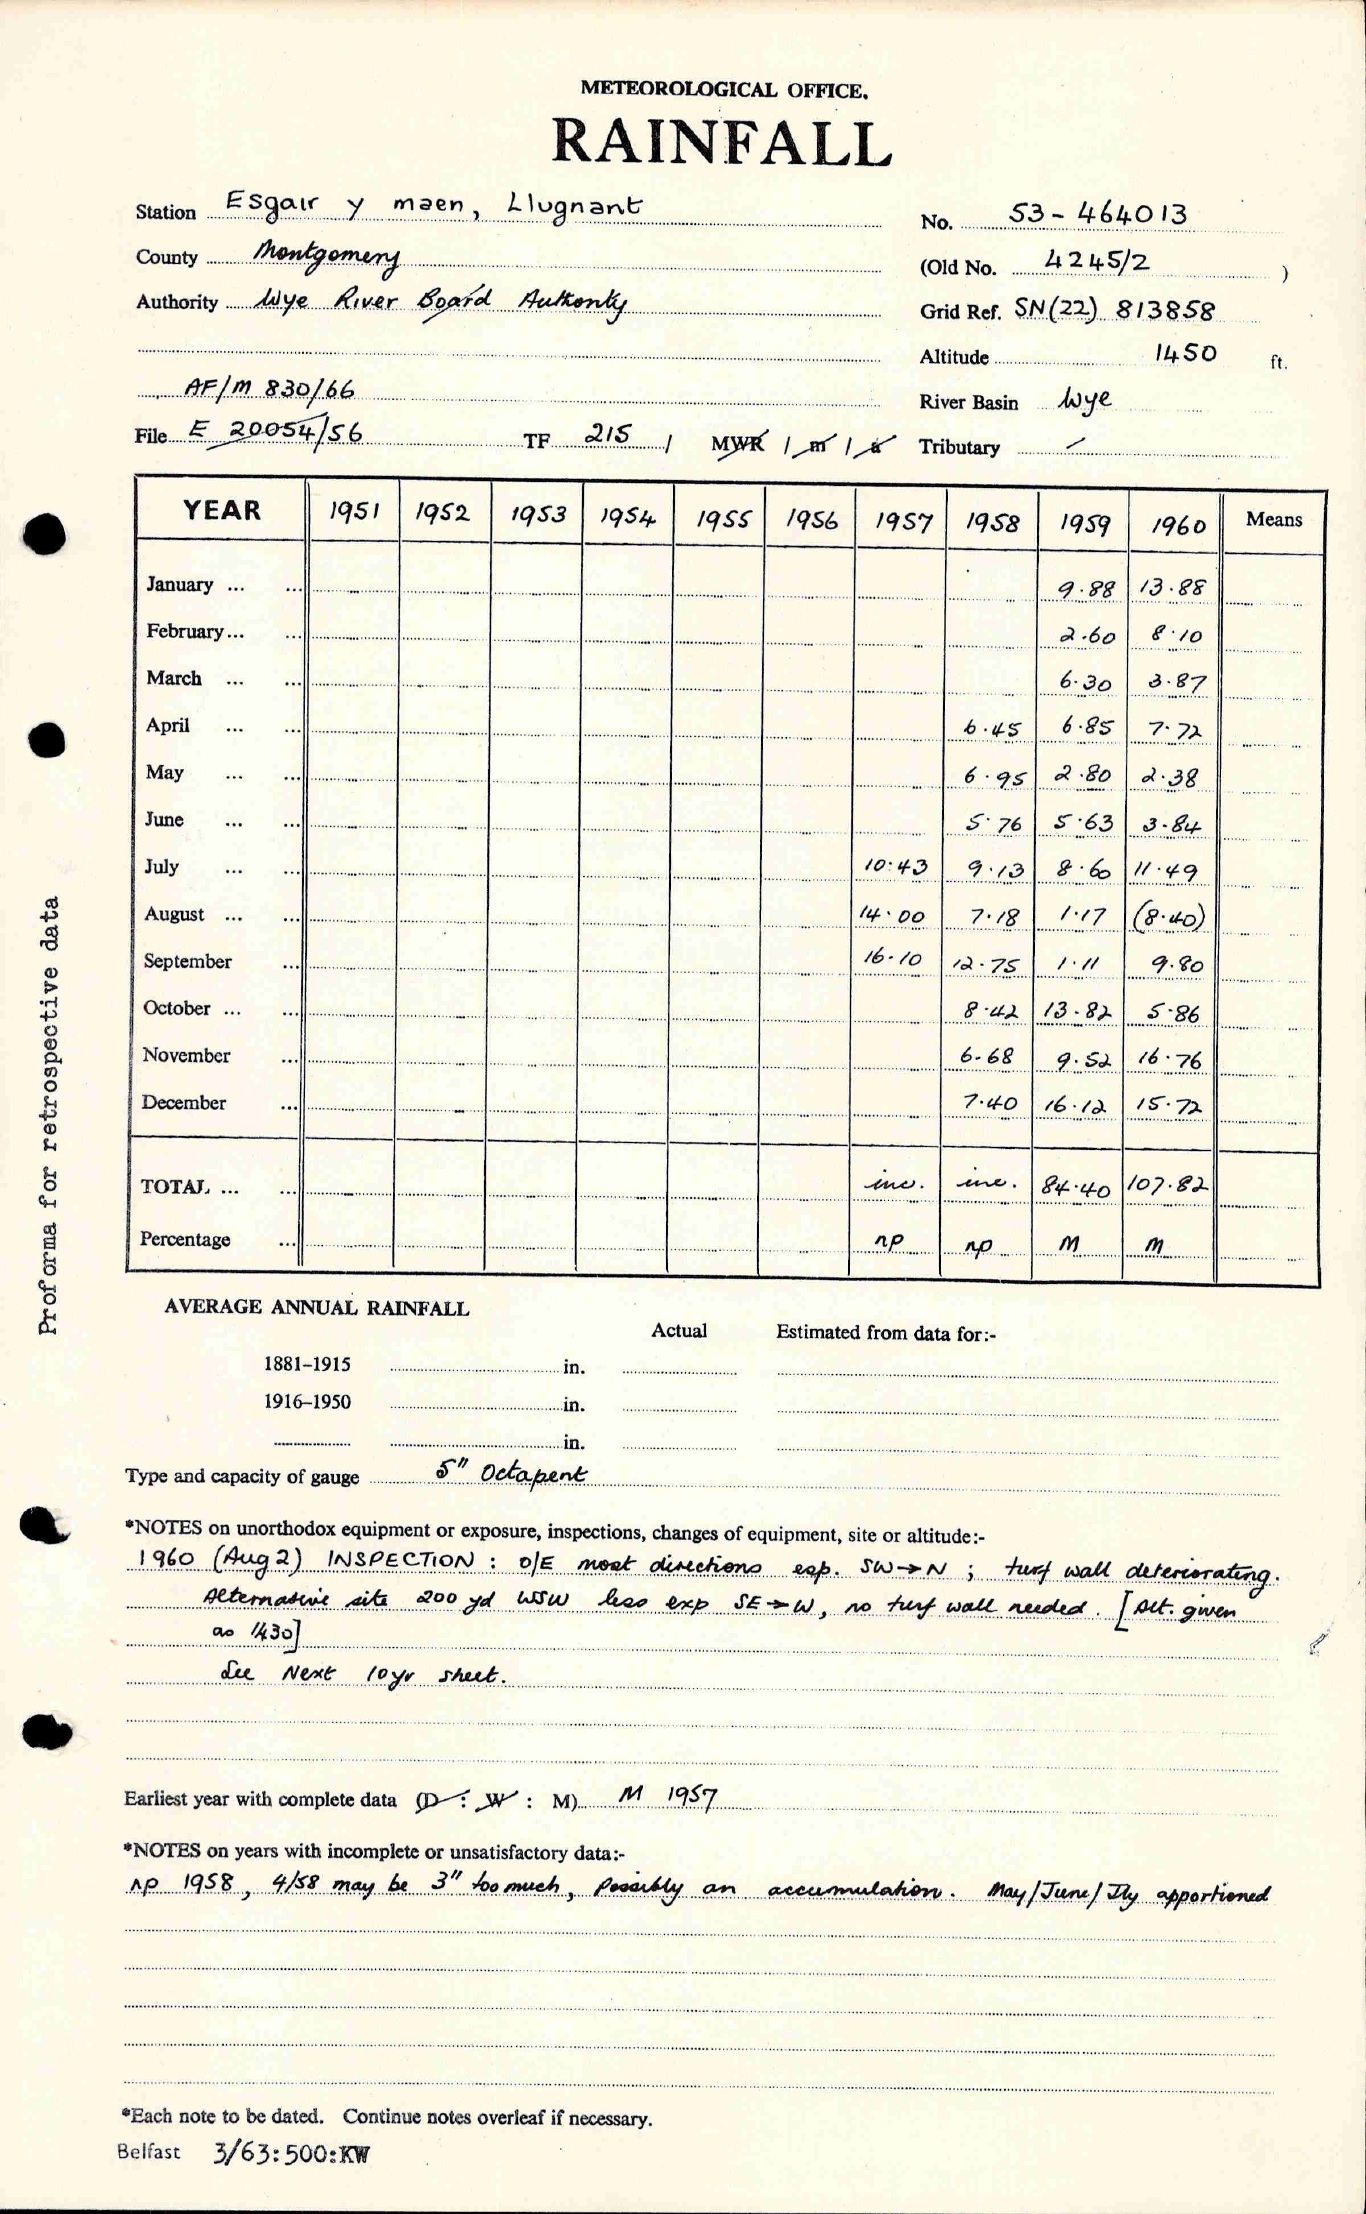 METEOROLOGICAL OFFICE.
RAINFALL
Station Esgair y maen, Llugnant
No. 53-464013
County Montgomery
(Old No. 4245/2 )
Authority Wye River Board Authority
Grid Ref. SN(22) 813858
Altitude 1450 ft.
AF/M 830/66
River Basin Wye
File E 20054/56 TF 215 / MWR / m / a Tributary /
YEAR 1951 1952 1953 1954 1955 1956 1957 1958 1959 1960 Means
January ... ... 9.88 13.88
February... ... 2.60 8.10
March ... ... 6.30 3.87
April ... ... 6.45 6.85 7.72
May ... ... 6.95 2.80 2.38
June ... ... 5.76 5.63 3.84
July ... ... 10.43 9.13 8.60 11.49
August ... ... 14.00 7.18 1.17 (8.40)
September ... 16.10 12.75 1.11 9.80
October ... ... 8.42 13.82 5.86
November ... 6.68 9.52 16.76
December ... 7.40 16.12 15.72
TOTAL ... ... inc. inc. 84.40 107.82
Percentage ... np np M M
Proforma for retrospective data
AVERAGE ANNUAL RAINFALL
Actual Estimated from data for:-
1881-1915 in.
1916-1950 in.
in.
Type and capacity of gauge 5" Octapent
*NOTES on unorthodox equipment or exposure, inspections, changes of equipment, site or altitude:-
1960 (Aug 2) INSPECTION : O/E most directions esp. SW→N ; turf wall deteriorating.
Alternative site 200 yd WSW less exp SE→W, no turf wall needed. [Alt. given
as 1430]
See Next 10yr sheet.
Earliest year with complete data (D : W : M) M 1957
*NOTES on years with incomplete or unsatisfactory data:-
np 1958, 4/58 may be 3" too much, possibly an accumulation. May/June/Jly apportioned
*Each note to be dated. Continue notes overleaf if necessary.
Belfast 3/63:500:KW